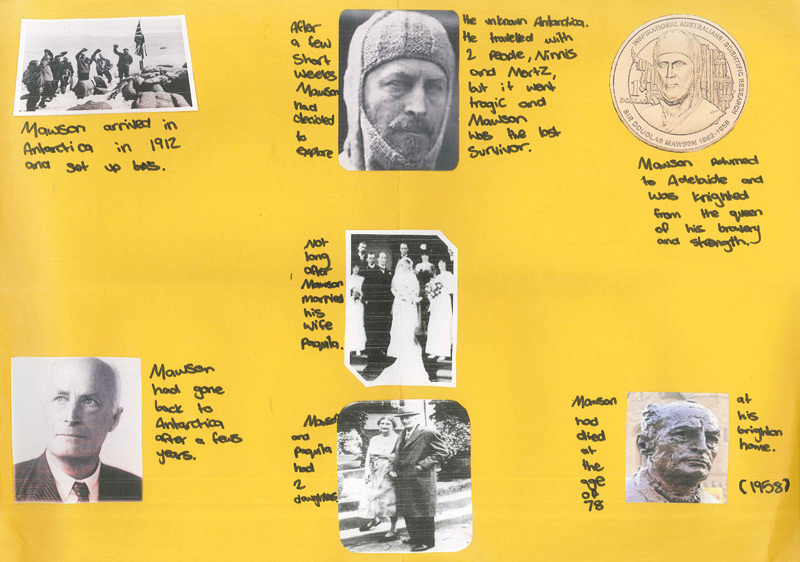 Mawson arrived in
Antarctica in 1912
and set up bas.
After
a few
short
weeks
Mawson
had
decided
to
explore
the unknown Antarctica.
He travelled with
2 people, Ninnis
and Mertz,
but it went
tragic and
Mawson
was the last
survivor.
INSPIRATIONAL AUSTRALIANS: SCIENTIFIC RESEARCH
SIR DOUGLAS MAWSON 1882-1958
Mawson returned
to Adelaide and
was knighted
from the queen
of his bravery
and strength.
Not
long
after
Mawson
married
his
wife
Paquita.
Mawson
had gone
back to
Antarctica
after a fews
years.
Mawson
and
Paquita
had
2
daughters
Mawson
had
died
at
the
age
of
78
at
his
brighton
home.
(1958)